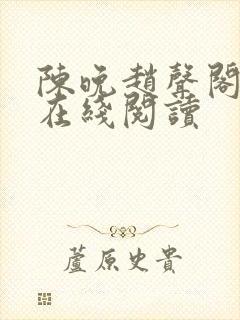 陳晚趙聲閣
在綫閱讀
蘆原史貴